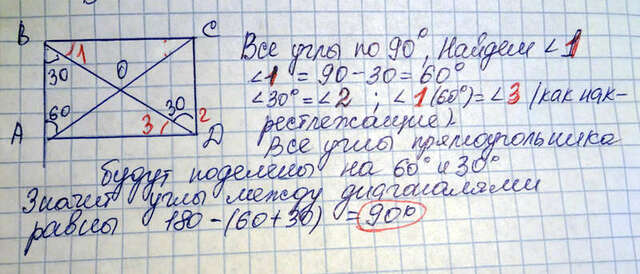 B
C
1
30
O
60
30
2
A
3
D
Все углы по 90°, Найдем ∠1
∠1 = 90 - 30 = 60°
∠30° = ∠2 ; ∠1 (60°) = ∠3 (как нак-
рестлежащие).
Все углы прямоугольника
будут поделены на 60° и 30°
Значит углы между диагоналями
равны 180 - (60 + 30) = 90°